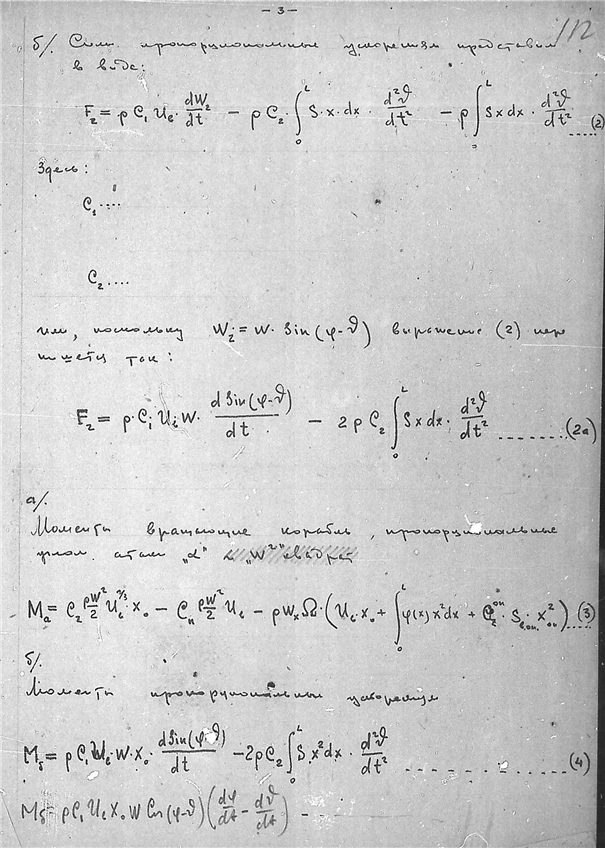 - 3 -
112
б/. Силы пропорциональные ускорениям представим
в виде:
F₂ = ρ C₁ U_в dW₂/dt − ρ C₂ · ∫₀ᴸ S · x · dx · d²ϑ/dt² − ρ ∫₀ᴸ S x dx · d²ϑ/dt² ....(2)
Здесь:
C₁ ....
C₂ ....
или, поскольку W₂ = W · Sin(φ-ϑ) выражение (2) пере
пишется так:
F₂ = ρ · C₁ U_в W · d Sin(φ-ϑ)/dt − 2 ρ C₂ ∫₀ᴸ S x dx · d²ϑ/dt² .......(2а)
а/.
Моменты вращающие корабль, пропорциональные
углам атаки „α"
M_a = C₂ ρW²/2 U_в^⅔ · x₀ − C_n ρW²/2 U_в − ρ W_x Ω · (U_в x₀ + ∫₀ᴸ φ(x) x² dx + · S_в.оп. · x²_оп) ...(3)
б/.
Моменты пропорциональные ускорениям
M_б = ρ C₁ U_в · W · x₀ · dSin(φ-ϑ)/dt − 2ρ C₂ ∫₀ᴸ S x² dx · d²ϑ/dt² ..........(4)
M_б = ρ C₁ U_в x₀ W Cos(φ-ϑ) (dφ/dt − dϑ/dt) −